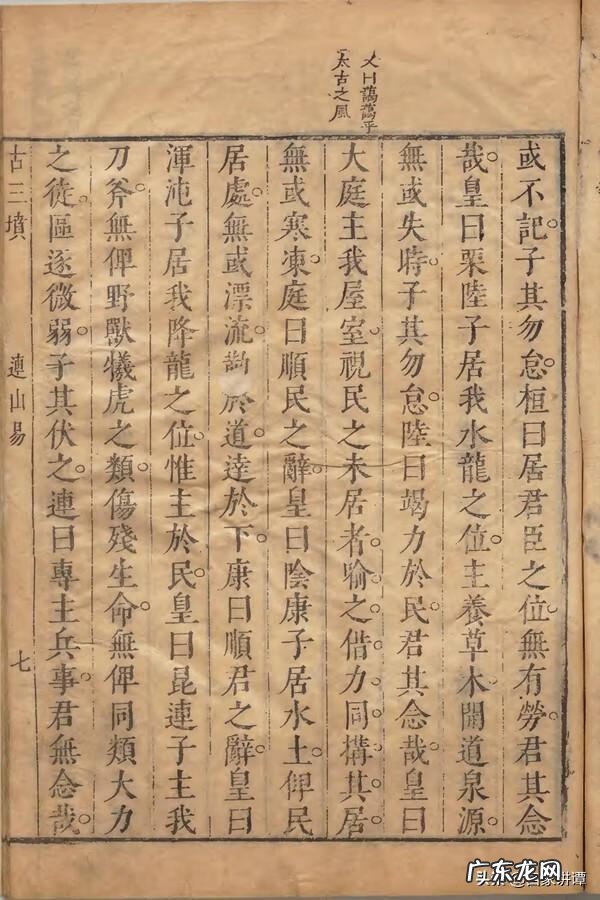 又曰藹藹乎
太古之風
或不記子其勿怠桓曰居君臣之位無有勞君其念
哉皇曰栗陸子居我水龍之位主養草木開道泉源
無或失時子其勿怠陸曰竭力於民君其念哉皇曰
大庭主我屋室視民之未居者喻之借力同構其居
無或寒凍庭曰順民之辭皇曰陰康子居水土俾民
居處無或漂流勤於道達於下康曰順君之辭皇曰
渾沌子居我降龍之位惟主於民皇曰昆連子主我
刀斧無俾野獸犧虎之類傷殘生命無俾同類大力
之徒區逐微弱子其伏之連曰專主兵事君無念哉
古三墳 連山易 七
广东龙网
头条@百家讲谭